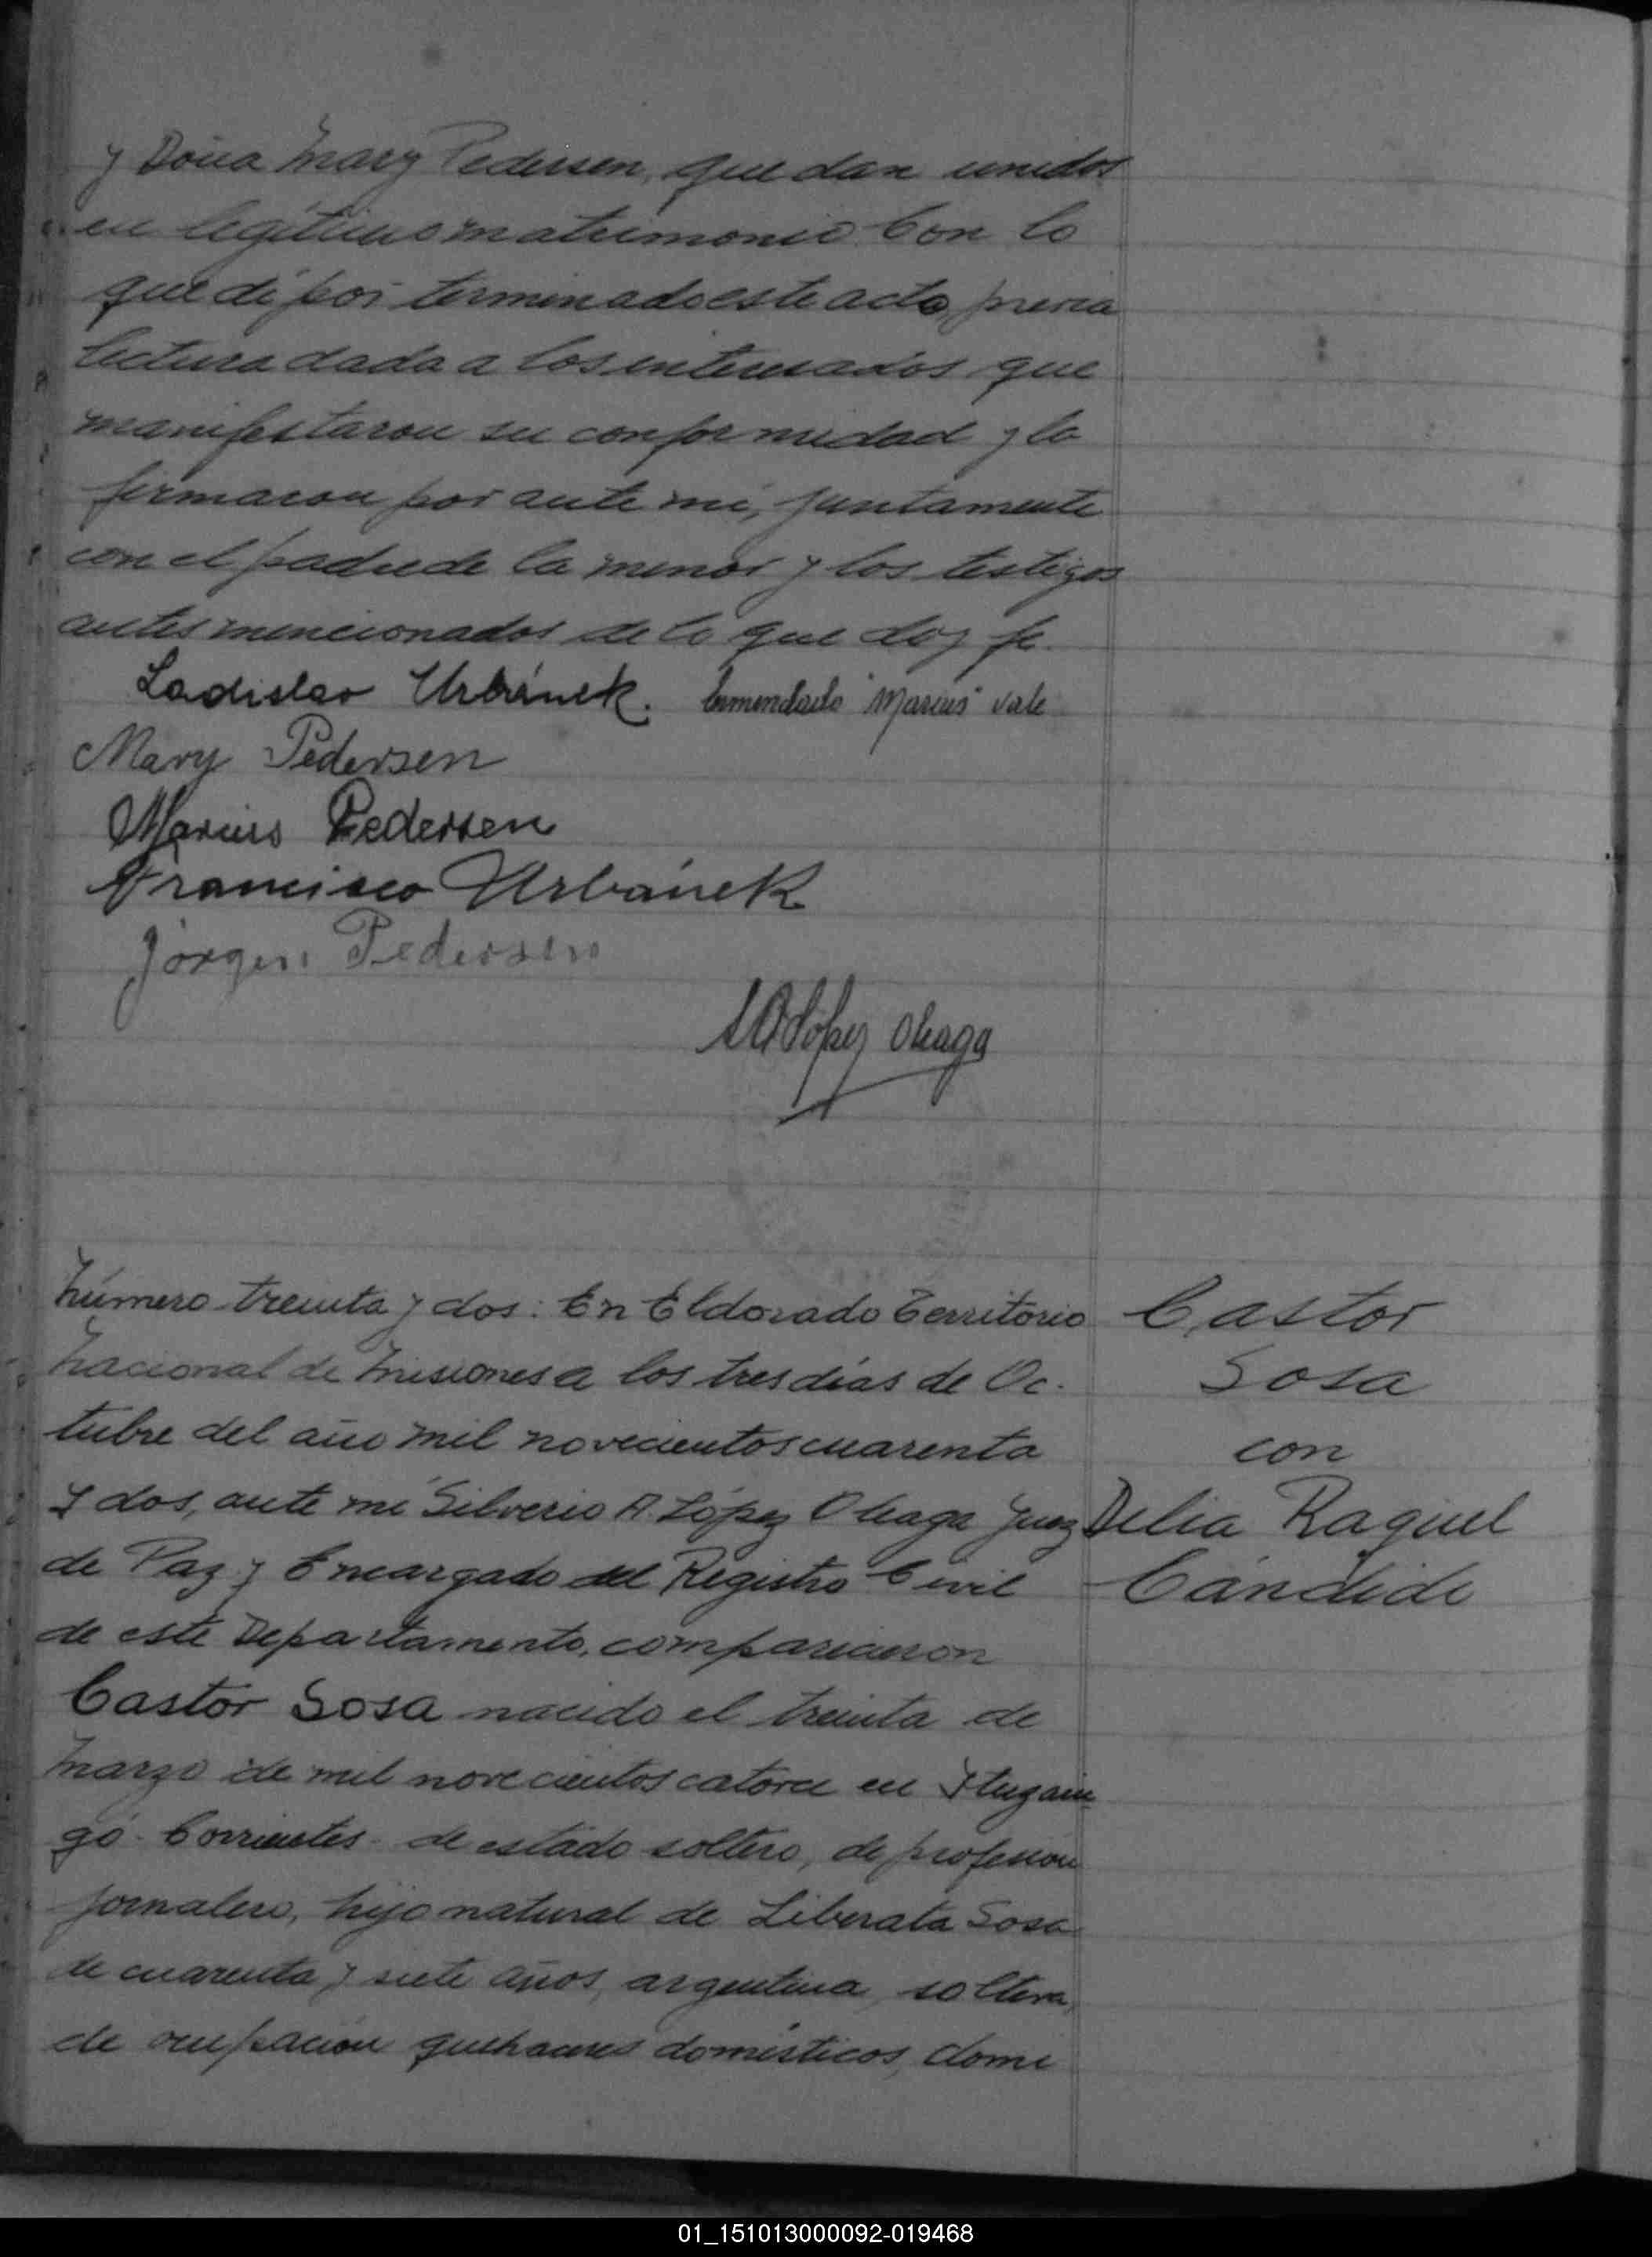 y Doña Mary Pedersen, quedan unidos
en legítimo matrimonio. Con lo
que dí por terminado este acto, previa
lectura dada a los interesados que
manifestaron su conformidad y la
firmaron por ante mi, juntamente
con el padre de la menor y los testigos
antes mencionados de lo que doy fe.
Ladislao Urbánek. Enmendado "Marius" vale
Mary Pedersen
Marius Pedersen
Francisco Urbánek
Jörgen Pedersen
López Oleaga
Número treinta y dos: En Eldorado Territorio
Nacional de Misiones a los tres días de Oc-
tubre del año mil novecientos cuarenta
y dos, ante mi Silverio A. López Oleaga Juez
de Paz y Encargado del Registro Civil
de este Departamento, comparecieron
Castor Sosa nacido el treinta de
Marzo de mil novecientos catorce en Ituzain
gó - Corrientes - de estado soltero, de profesión
jornalero, hijo natural de Liberata Sosa
de cuarenta y siete años, argentina, soltera,
de ocupación quehaceres domésticos, domi
Castor
Sosa
con
Delia Raquel
Cándido
01_151013000092-019468